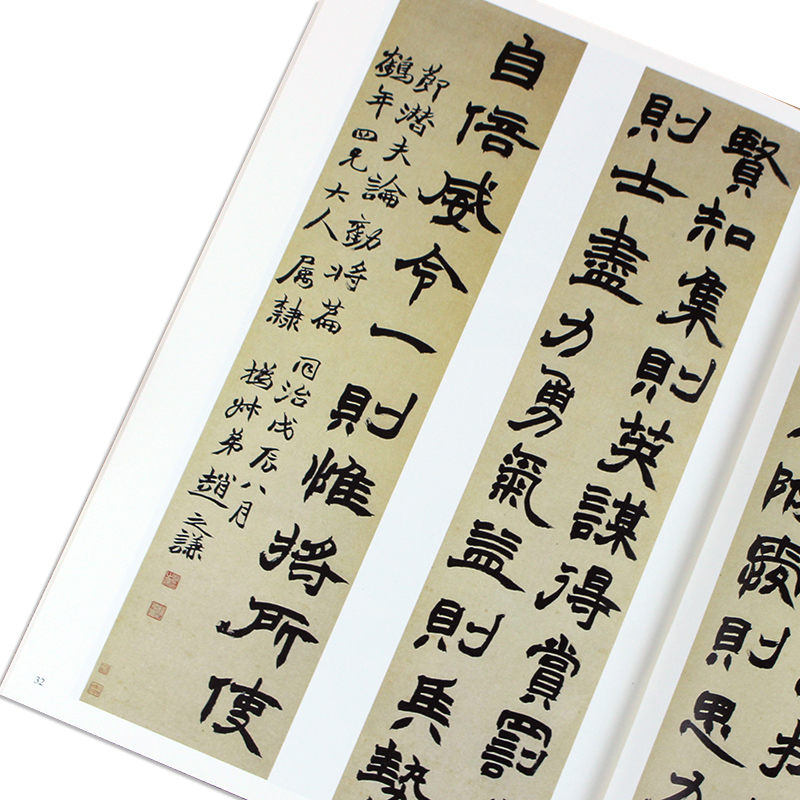 則思力
賢知集則英謀得賞罰
則士盡力勇氣益則兵勢
自倍威令一則惟將所使
節潛夫論勸將篇
鶴年四兄大人属隸
同治戊辰八月
撝叔弟趙之謙
32